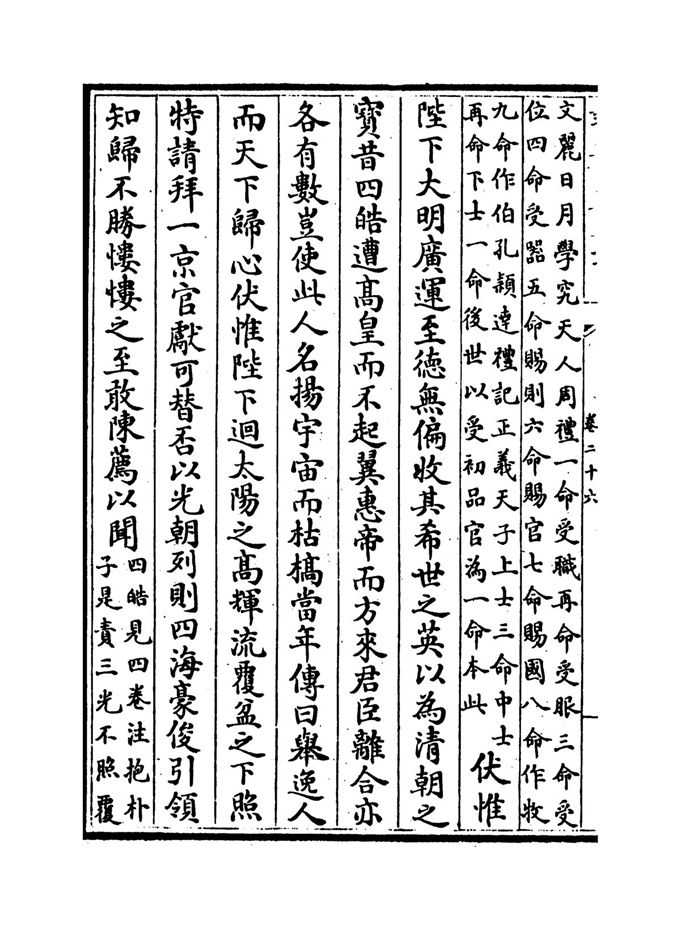 文麗日月學究天人周禮一命受職再命受服三命受
位四命受器五命賜則六命賜官七命賜國八命作牧
九命作伯孔穎達禮記正義天子上士三命中士
再命下士一命後世以受初品官為一命本此
伏惟
陛下大明廣運至德無偏收其希世之英以為清朝之
寳昔四皓遭髙皇而不起翼惠帝而方來君臣離合亦
各有數豈使此人名揚宇宙而枯槁當年傳曰舉逸人
而天下歸心伏惟陛下迴太陽之髙輝流覆盆之下照
特請拜一京官獻可替否以光朝列則四海豪俊引領
知歸不勝慺慺之至敢陳薦以聞
四皓見四卷注抱朴
子是責三光不照覆
卷二十六